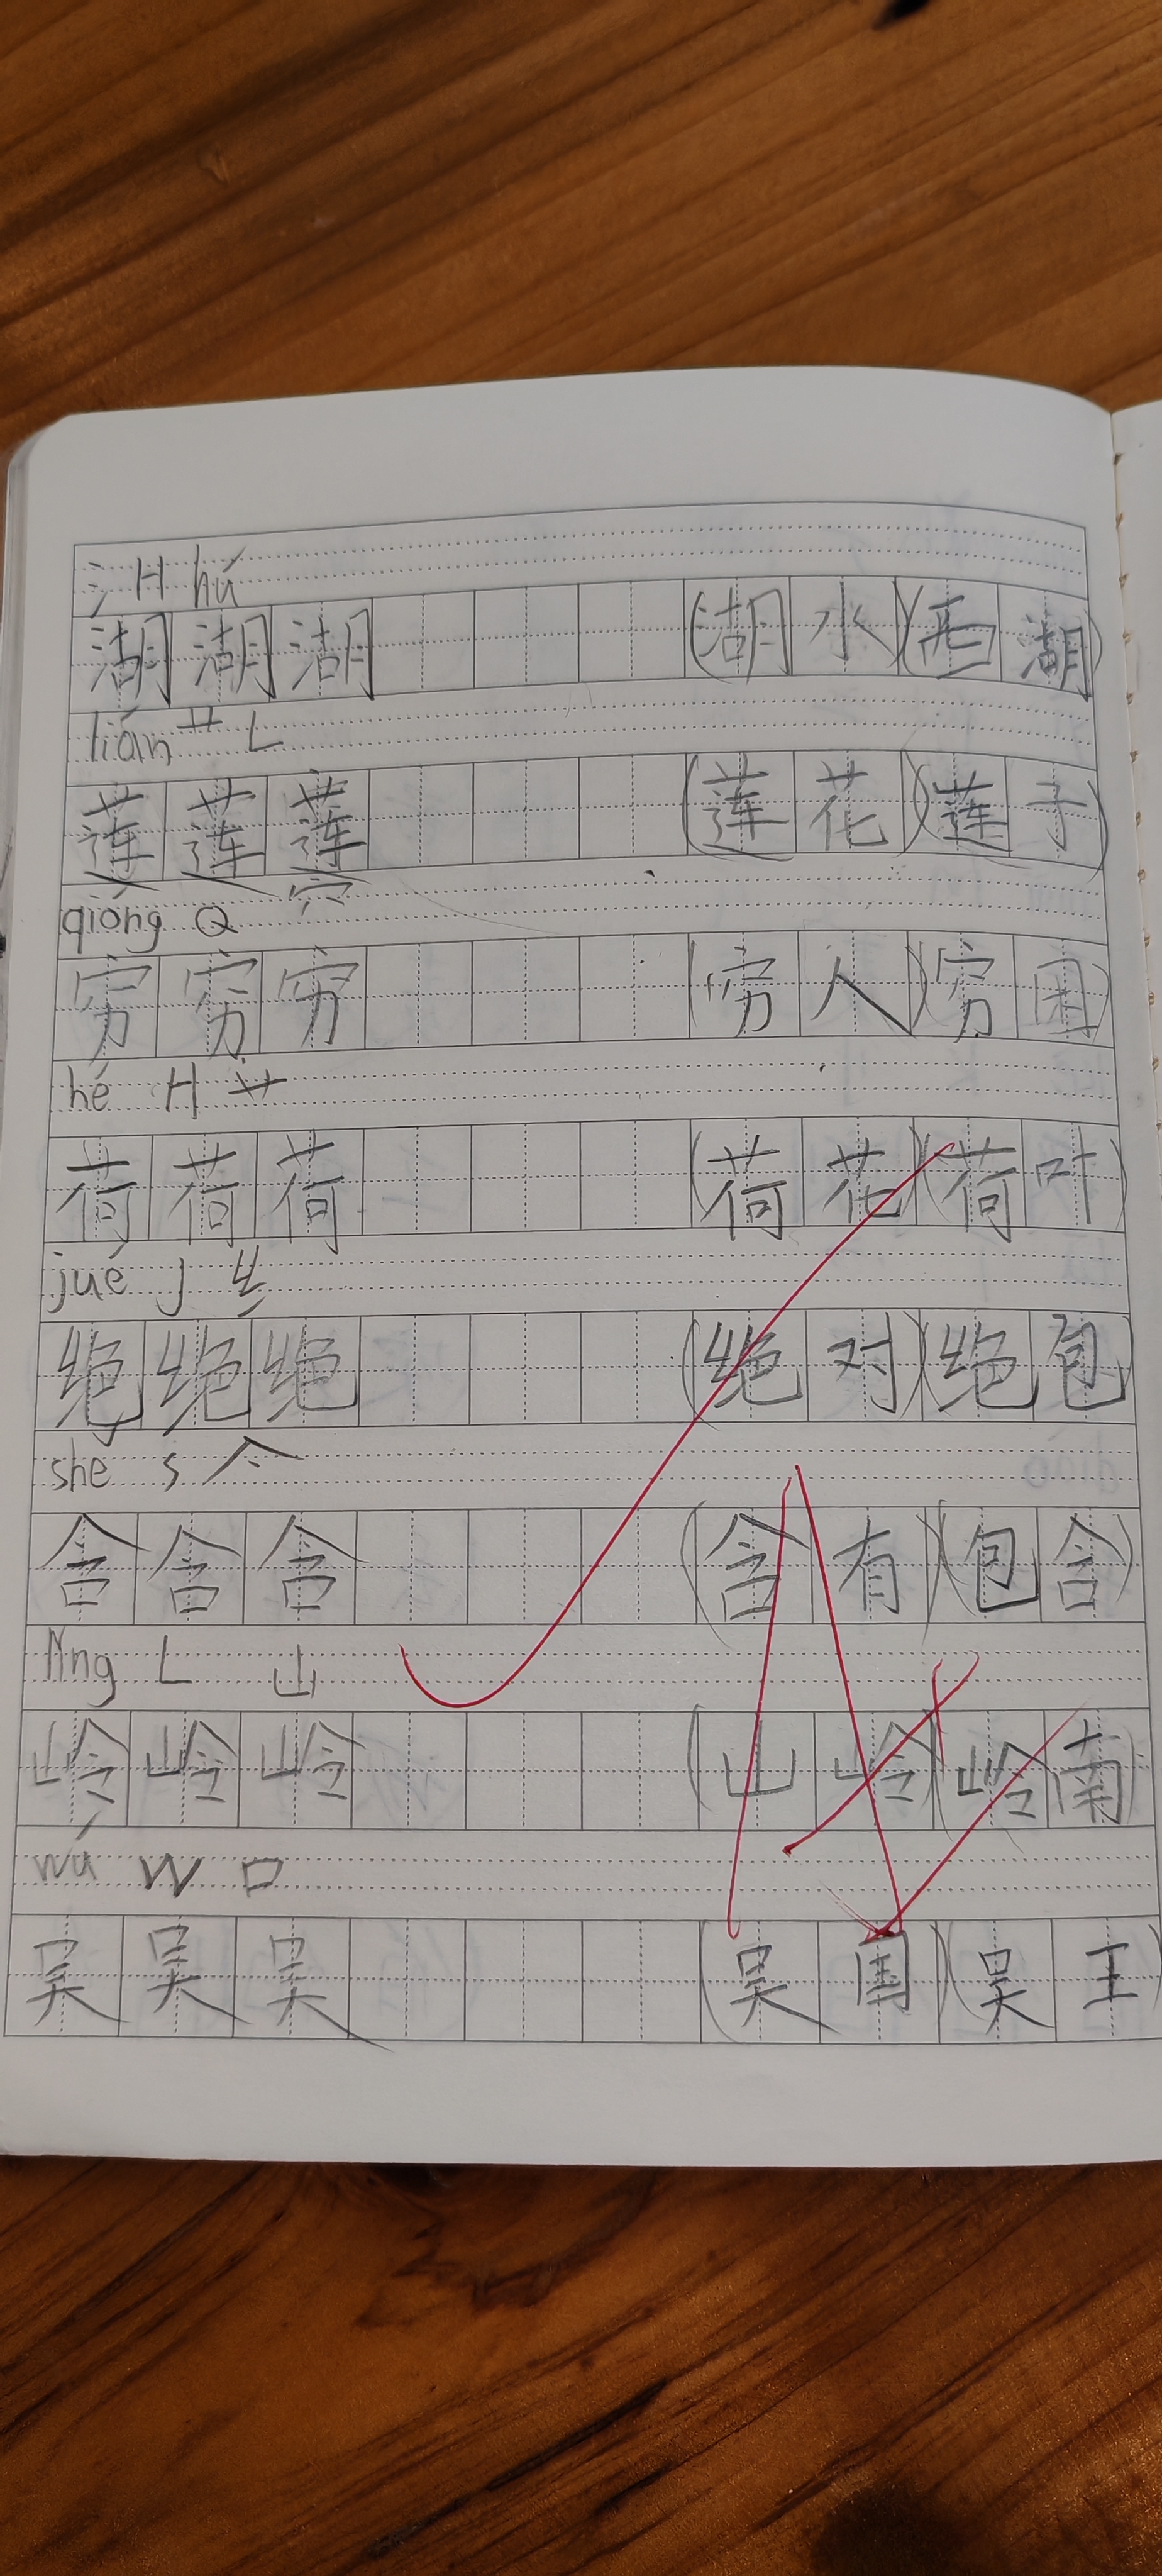 氵 H hú
湖湖湖 (湖水)(西湖)
lián 艹 L
莲莲莲 (莲花)(莲子)
qióng Q 穴
穷穷穷 (穷人)(穷困)
hé H 艹
荷荷荷 (荷花)(荷叶)
jué J 纟
绝绝绝 (绝对)(绝包)
shé s 人
含含含 (含有)(包含)
lǐng L 山
岭岭岭 (山岭)(岭南)
wú W 口
吴吴吴 (吴国)(吴王)